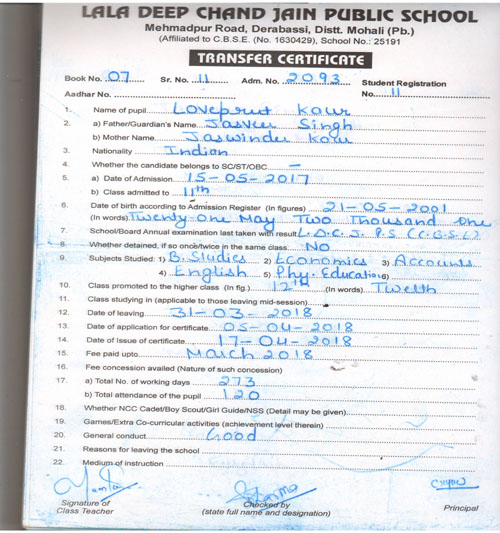 LALA DEEP CHAND JAIN PUBLIC SCHOOL
Mehmadpur Road, Derabassi, Distt. Mohali (Pb.)
(Affiliated to C.B.S.E. (No. 1630429), School No.: 25191
TRANSFER CERTIFICATE
Book No. 07 Sr. No. 11 Adm. No. 2093 Student Registration
Aadhar No. No. 11
1. Name of pupil Lovepreet Kaur
2. a) Father/Guardian's Name Jasveer Singh
b) Mother Name Jaswinder Kaur
3. Nationality Indian
4. Whether the candidate belongs to SC/ST/OBC –
5. a) Date of Admission 15-05-2017
b) Class admitted to 11th
6. Date of birth according to Admission Register (In figures) 21-05-2001
(In words) Twenty One May Two Thousand One
7. School/Board Annual examination last taken with result L.D.C.J.P.S (C.B.S.E)
8. Whether detained, if so once/twice in the same class. No
9. Subjects Studied: 1) B. Studies 2) Economics 3) Accounts
4) English 5) Phy. Education 6)
10. Class promoted to the higher class (In fig.) 12th (In words) Twelth
11. Class studying in (applicable to those leaving mid-session)
12. Date of leaving 31-03-2018
13. Date of application for certificate 05-04-2018
14. Date of Issue of certificate 17-04-2018
15. Fee paid upto March 2018
16. Fee concession availed (Nature of such concession)
17. a) Total No. of working days 273
b) Total attendance of the pupil 120
18. Whether NCC Cadet/Boy Scout/Girl Guide/NSS (Detail may be given)
19. Games/Extra Co-curricular activities (achievement level therein)
20. General conduct Good
21. Reasons for leaving the school
22. Medium of instruction
Signature of Checked by Principal
Class Teacher (state full name and designation)